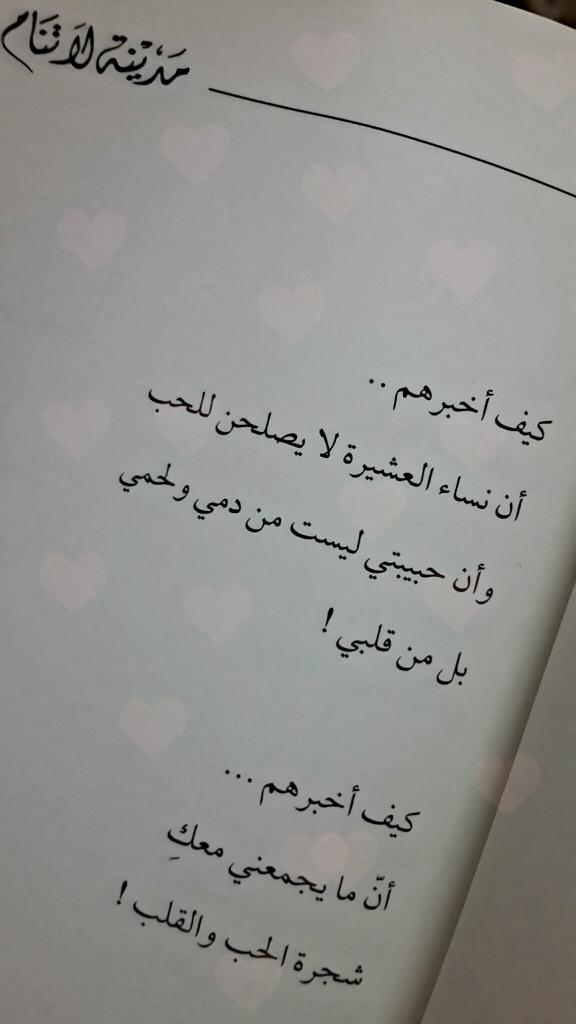 مَدْيْنَة لَا تَنَام
كيف أخبرهم ..
أن نساء العشيرة لا يصلحن للحب
وأن حبيبتي ليست من دمي ولحمي
بل من قلبي !
كيف أخبرهم ...
أنّ ما يجمعني معكِ
شجرة الحب والقلب !